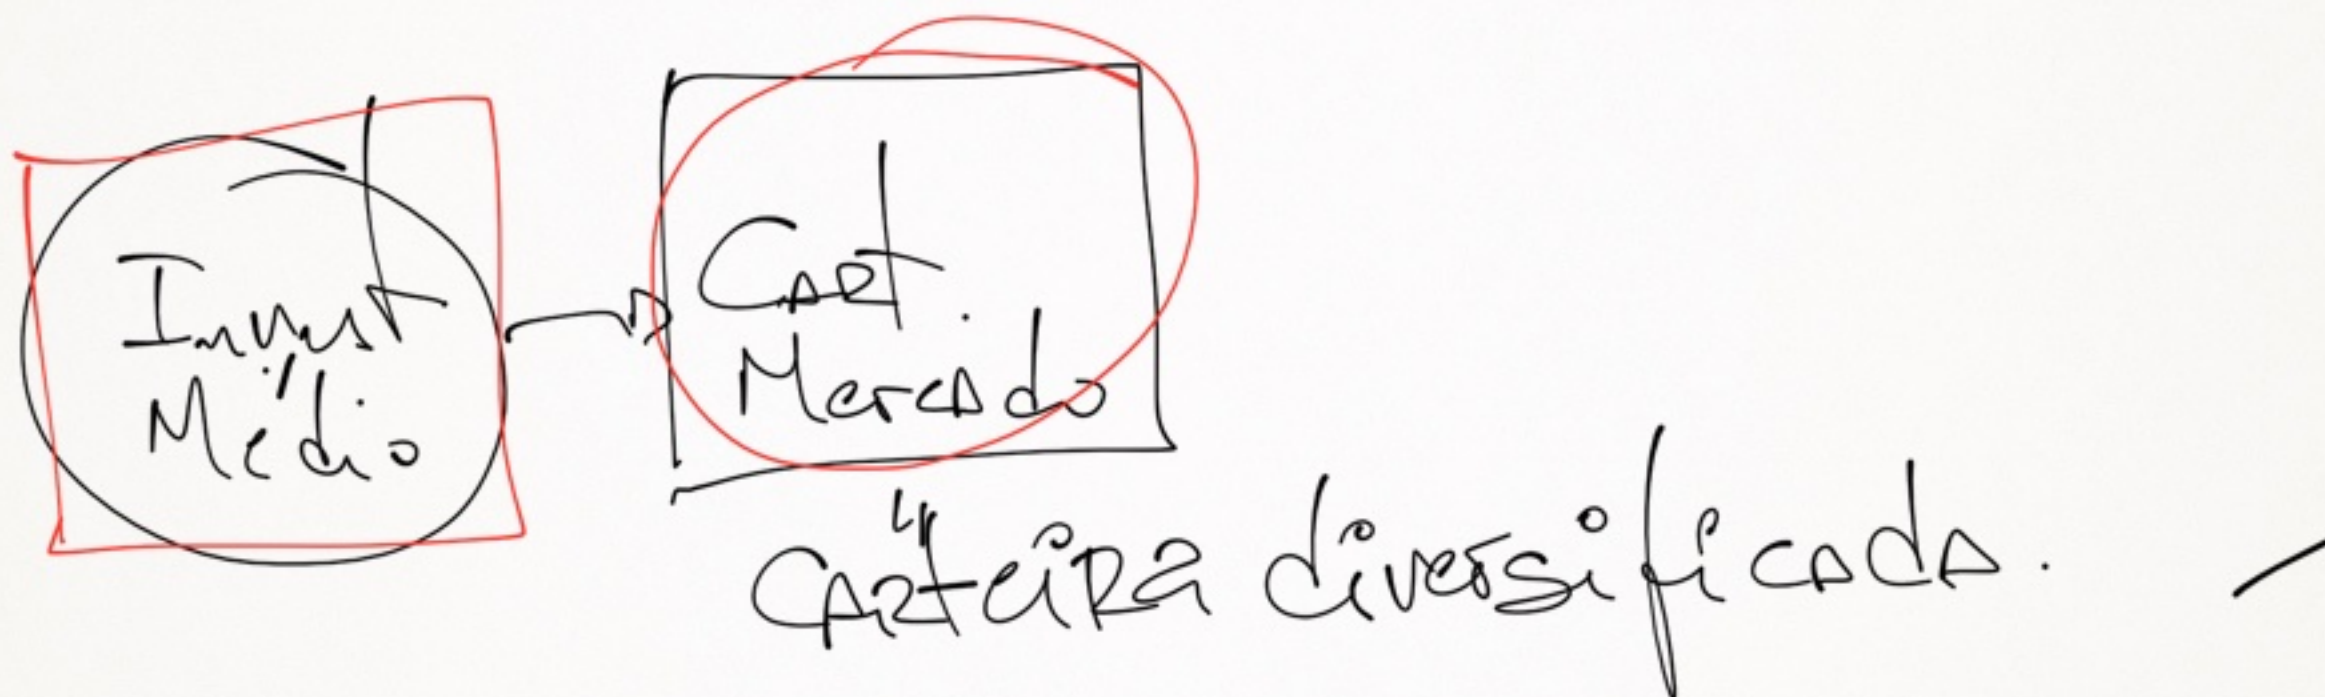 Invest
Médio
Cart.
Mercado
Carteira diversificada.